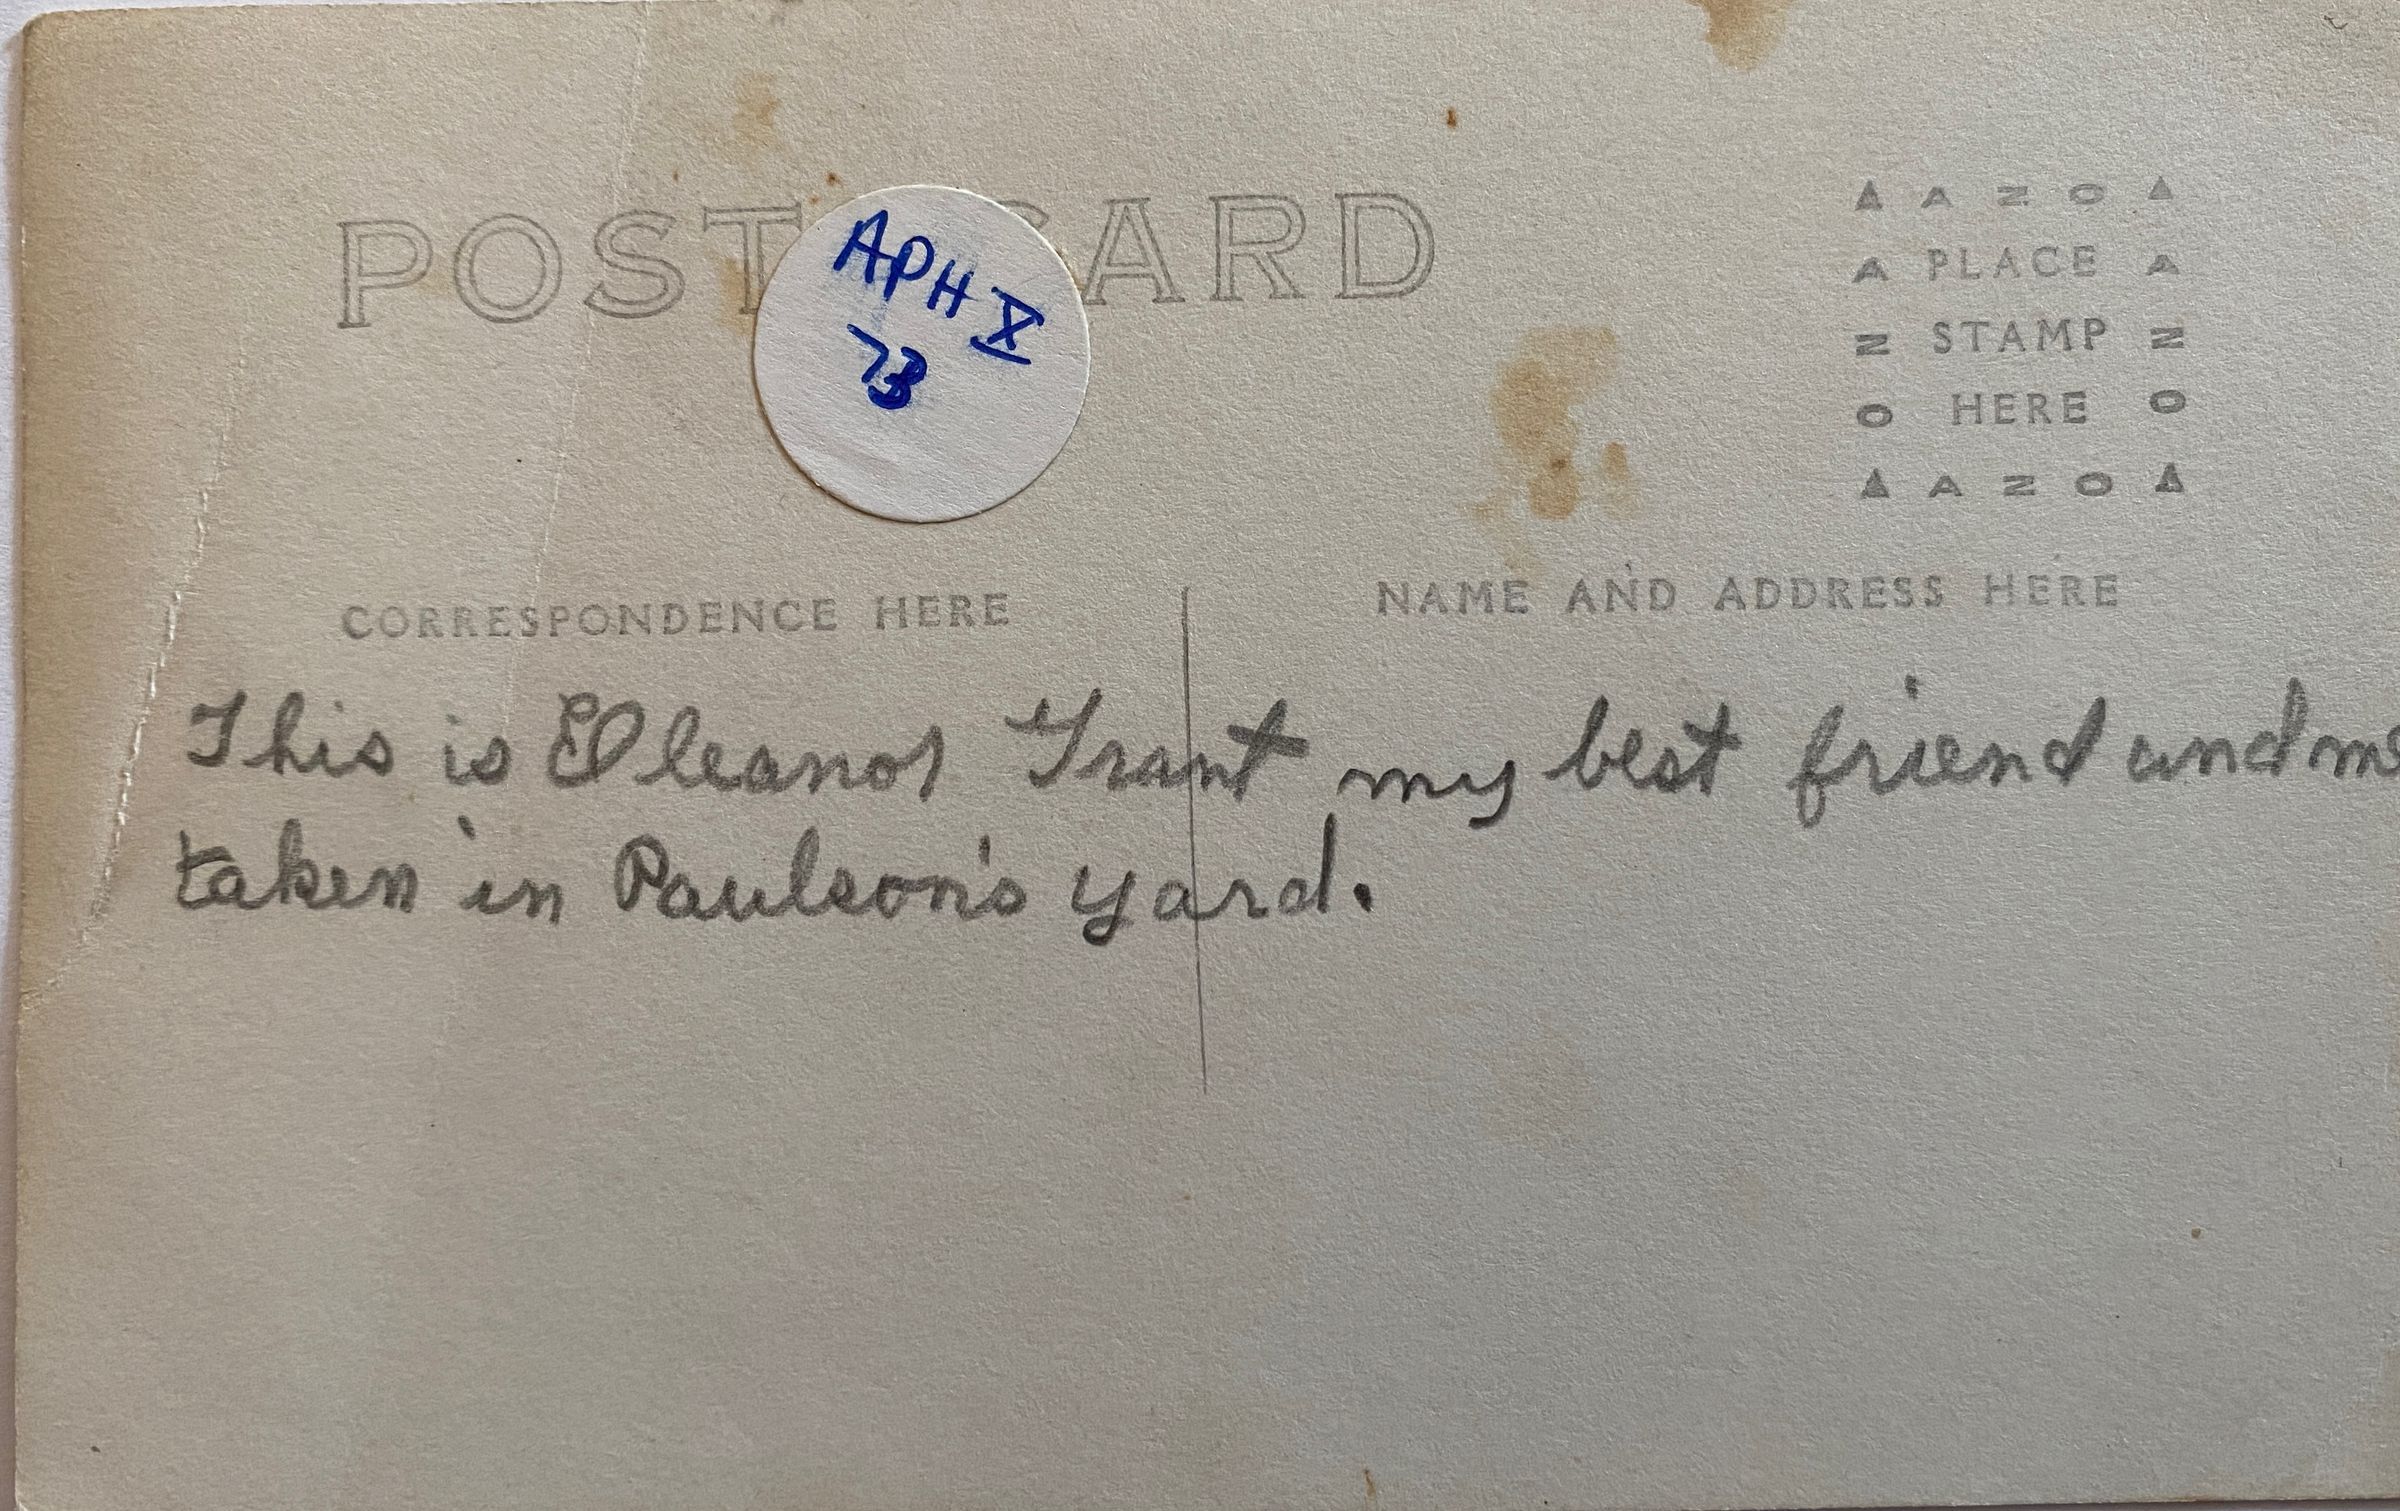 POST CARD
APH X
73
AZO
PLACE
STAMP
HERE
AZO
AZO
AZO
CORRESPONDENCE HERE
NAME AND ADDRESS HERE
This is Eleanor Trant my best friend and me
taken in Paulson's yard.